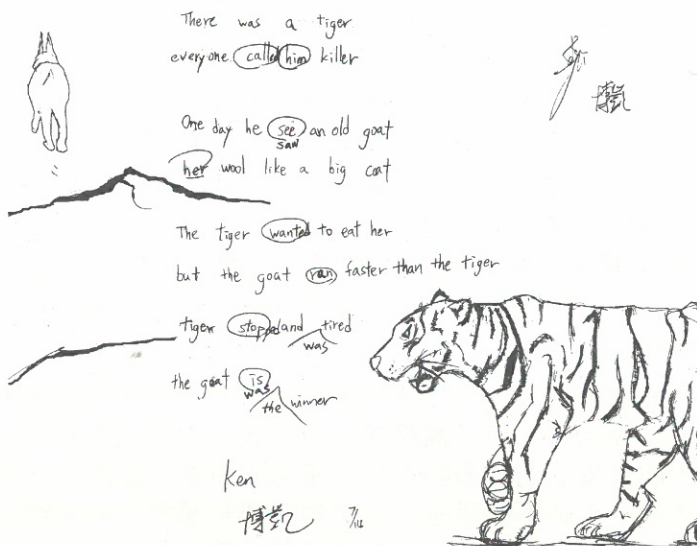 There was a tiger
everyone called him killer
One day he see an old goat
saw
her wool like a big coat
The tiger wanted to eat her
but the goat ran faster than the tiger
tiger stopped and tired
was
the goat is
was
the winner
Ken
博凱
博凱